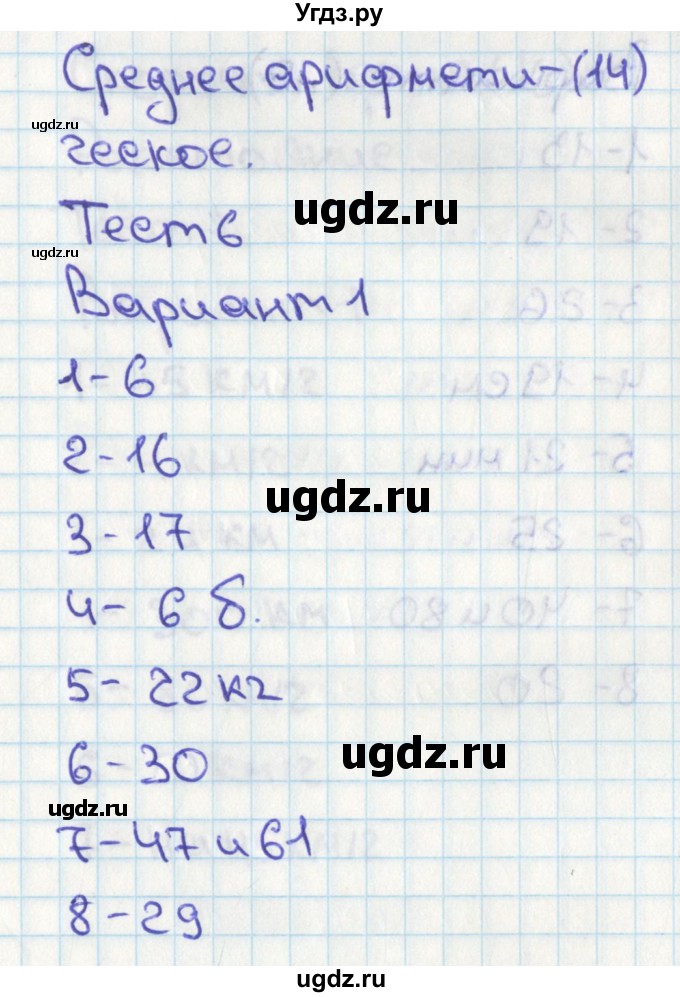 Угдз.ру
Среднее арифмети-(14)
ugdz.ru
ческое.
ugdz.ru
Тест 6
ugdz.ru
Вариант 1
1-6
2-16
ugdz.ru
3-17
4- 6 б.
5-22кг
ugdz.ru
6-30
ugdz.ru
7-47 и 61
8-29
ugdz.ru